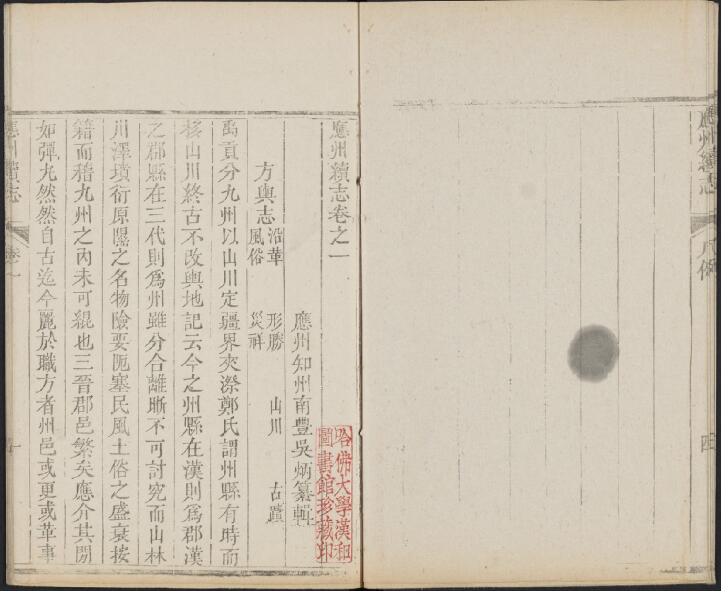 應州續志
凡例
四
應州續志卷之一
應州知州南豐吳炳纂輯
哈佛大學漢和
圖書館珍藏印
方輿志 沿革 形勝 山川 古蹟
風俗 災祥
禹貢分九州以山川定疆界夾漈鄭氏謂州縣有時而
移山川終古不改輿地記云今之州縣在漢則為郡漢
之郡縣在三代則為州雖分合離晰不可討究而山林
川澤墳衍原隰之名物險要阨塞民風土俗之盛衰按
籍而稽九州之內未可緄也三晉郡邑繁矣應介其閒
如彈丸然然自古迄今麗於職方者州邑或更或革事
應州續志
卷之一
一